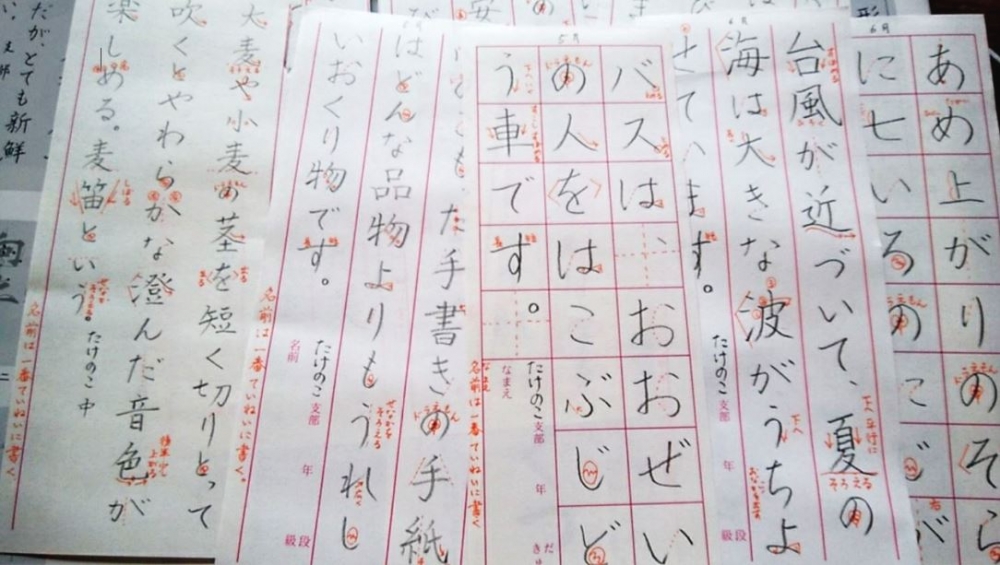 6月
あめ上がりのそら
に七いろのにじが
6月
台風が近づいて、夏の
海は大きな波がうちよ
せています。
たけのこ支部 年 段級
5月
バスは おおぜい
の人をはこぶじど
う車です。
たけのこ支部 年
なまえ
名前は一番ていねいに書く
た手書きの手紙
はどんな品物よりもうれし
いおくり物です。
たけのこ支部 年 段級
名前
名前は一番ていねいに書く。
大麦や小麦の茎を短く切りとって
吹くとやわらかな澄んだ音色が
楽しめる。麦笛という
たけのこ中
名前は一番ていねいに書く。
だが、とても新鮮